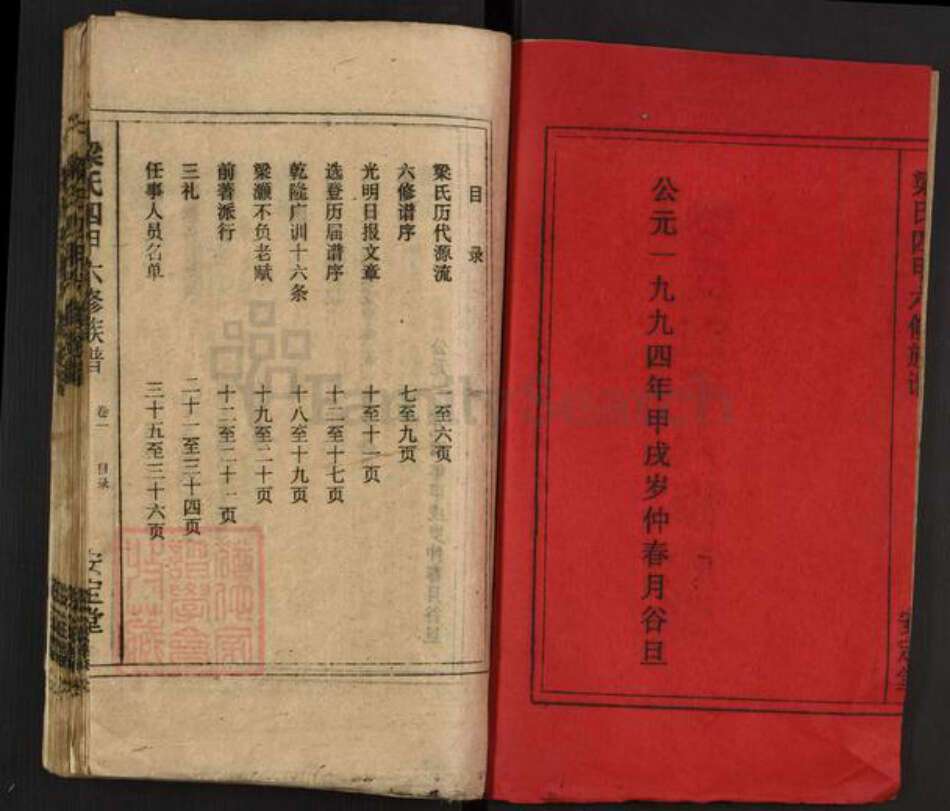 公元一九九四年甲戌岁仲春月谷旦
安定堂
目录
梁氏历代源流 一至六页
六修谱序 七至九页
光明日报文章 十至十一页
选登历届谱序 十二至十七页
乾隆广训十六条 十八至十九页
梁灏不负老赋 十九至二十页
前著派行
三礼 二十一至三十四页
任事人员名单 三十五至三十六页
六修族谱 卷一 目录
安定堂